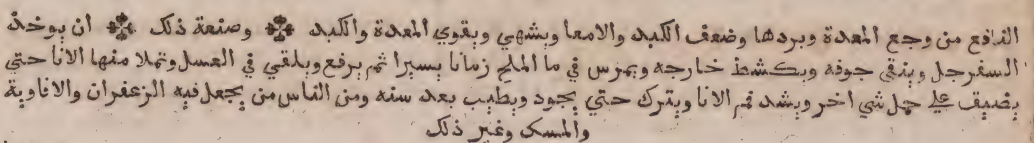 النافع من وجع المعدة وبردها وضعف الكبد والامعا ويشهي ويقوي المعدة والكبد ۞ وصنعة ذلك ۞ ان يوخذ
السفرجل وينقي جوفه ويكشط خارجه ويمرس في ما الملح زمانا يسيرا ثم يرفع ويلقي في العسل وتملا منها الانا حتي
يضيق علي حمل شي اخر ويشد فم الانا ويترك حتي يجود ويطيب بعد سنه ومن الناس من يجعل فيه الزعفران والافاوية
والمسك وغير ذلك